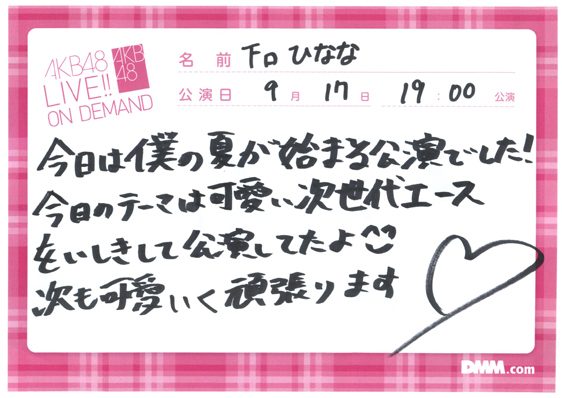 AKB48
LIVE!!
ON DEMAND
AKB
48
名前 下口ひなな
公演日 9月17日 19:00公演
今日は僕の夏が始まる公演でした!
今日のテーマは可愛い次世代エース
をいしきして公演してたよ^^
次も可愛いく頑張ります
DMM.com